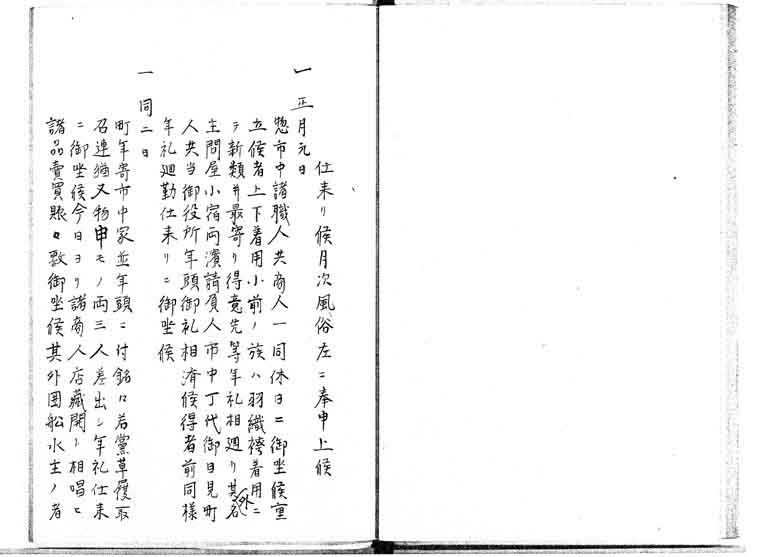 仕来リ候月次風俗左ニ奉申上候
一 正月元日
惣市中諸職人共商人一同休日ニ御坐候重
立候者上下着用小前ノ族ハ羽織袴着用ニ
テ新類并最寄リ得意先等年礼相廻リ其外名
主問屋小宿両濱請負人市中丁代御目見町
人共当御役所年頭御礼相済候得者前同様
年礼廻勤仕来リニ御坐候
一 同二日
町年寄市中家並年頭ニ付銘々若黨草履取
召連猶又物申モノ両三人差出シ年礼仕来
ニ御坐候今日ヨリ諸商人店藏開ト相唱ヒ
諸品賣買賑々敷御坐候其外囲船水主ノ者